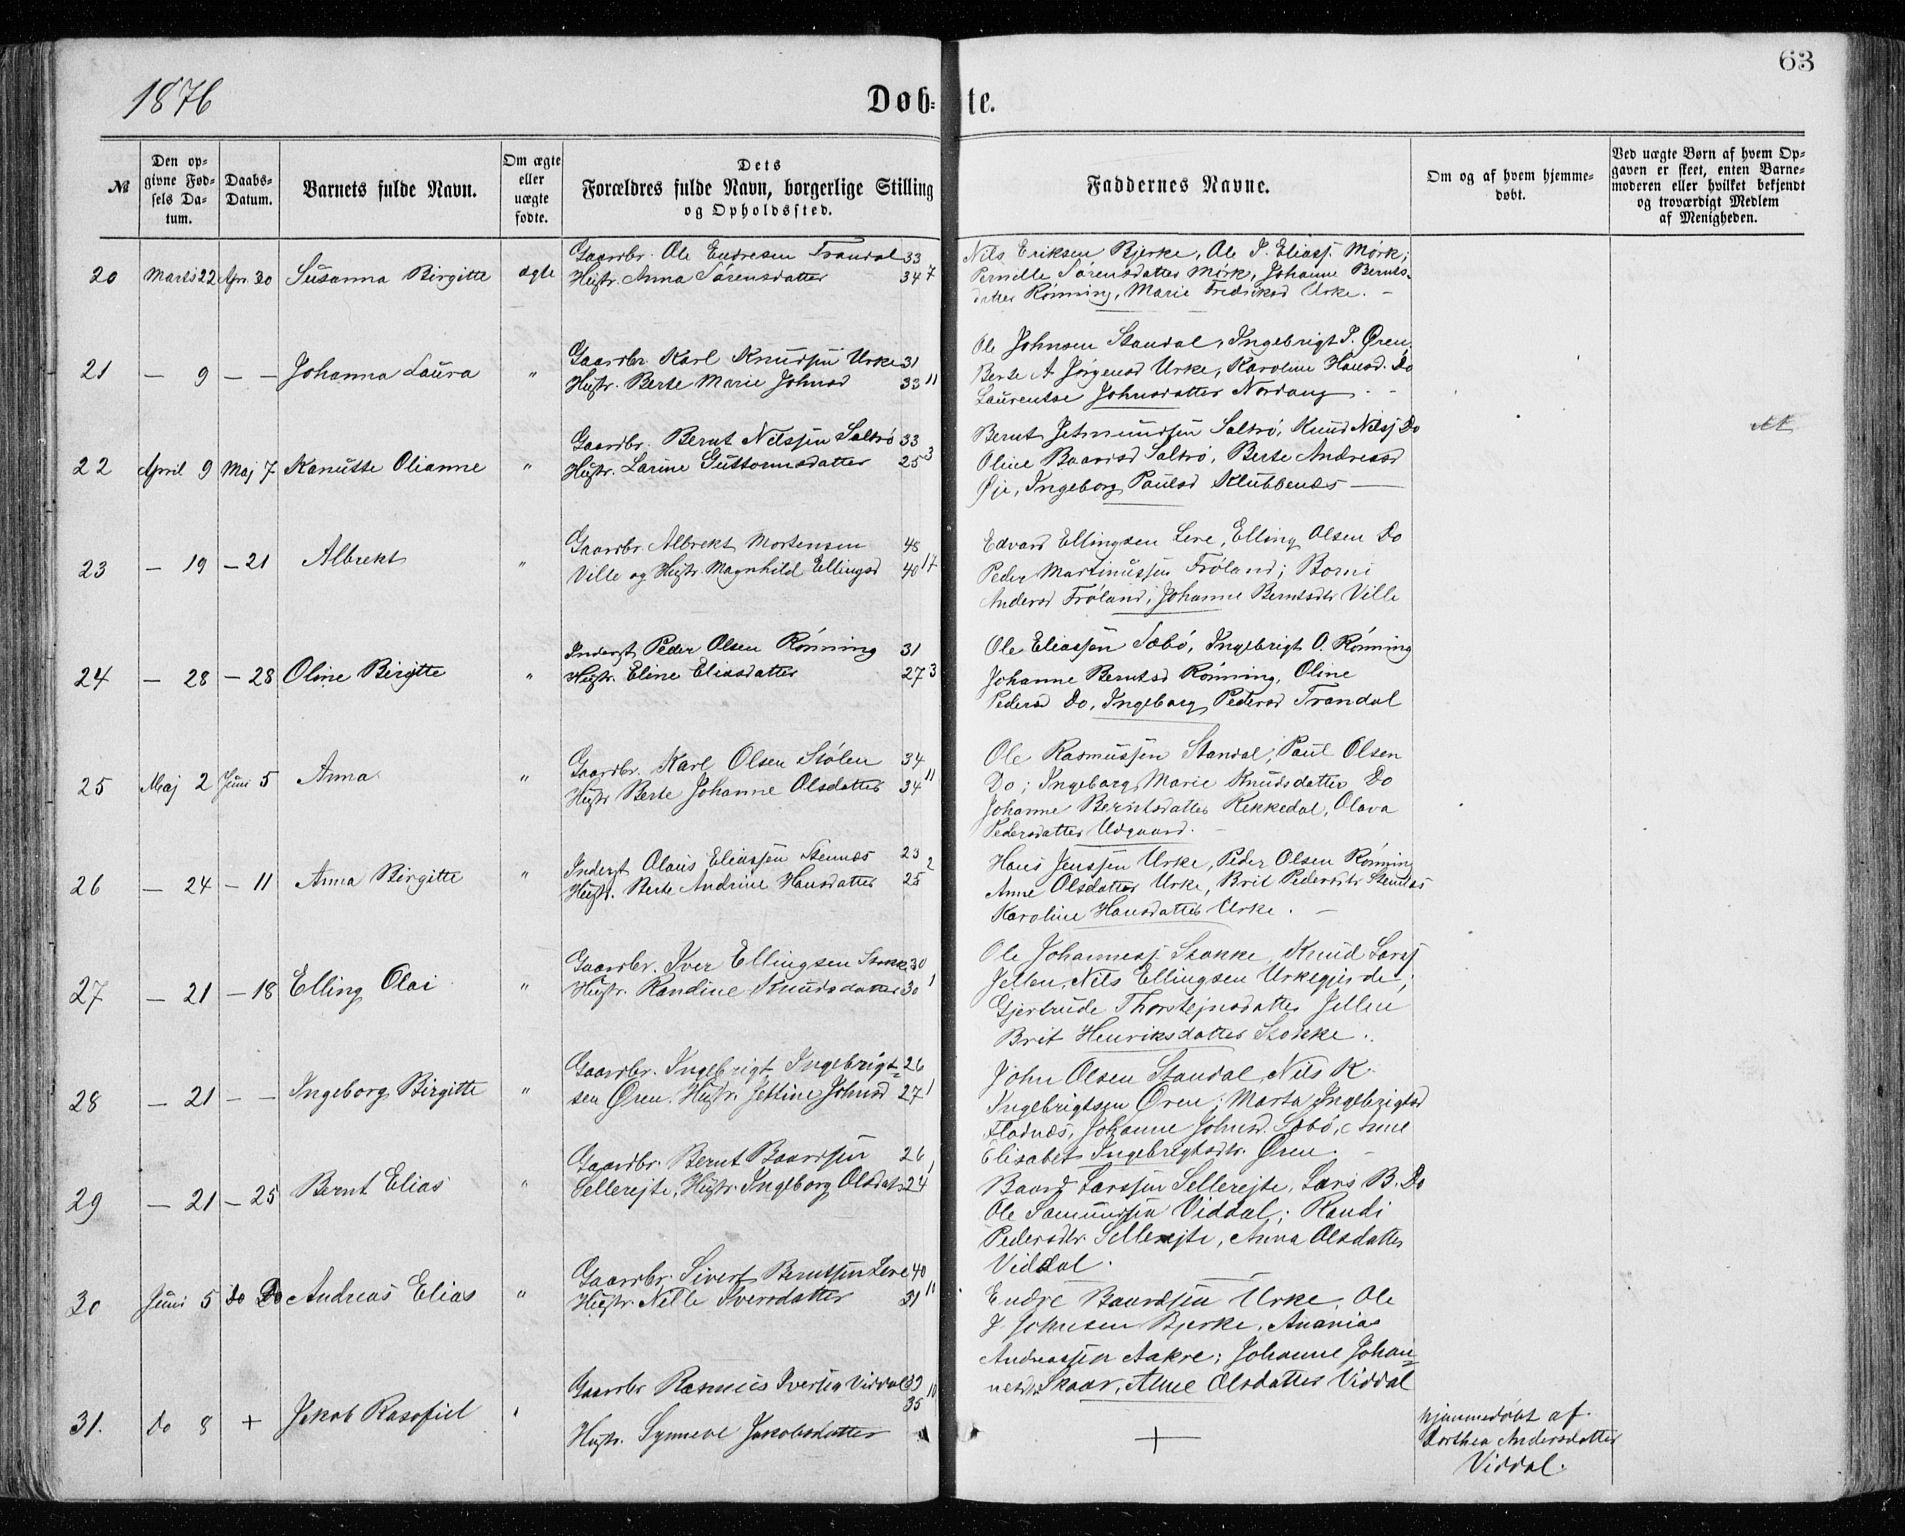 63
1876
Døb-
te.
№
Den op-
givne Fød-
sels Da-
tum.
Daabs-
Datum.
Barnets fulde Navn.
Om ægte
eller
uægte
fødte.
Dets
Forældres fulde Navn, borgerlige Stilling
og Opholdssted.
Faddernes Navne.
Om og af hvem hjemme-
døbt.
Ved uægte Børn af hvem Op-
gaven er skeet, enten Barne-
moderen eller hvilket bekjendt
og troværdigt Medlem
af Menigheden.
20 Marts 22 Apr. 30 Susanna Birgitte ægte
Gaardbr. Ole Endresen Trandal 33
Hustr. Anna Sørensdatter 34 7
Nils Eriksen Bjerke, Ole I. Eliass. Mørk;
Pernille Sørensdatter Mørk, Johanne Bernts-
datter Rønning, Marie Fredriksd Urke. —
21 — 9 — — Johanna Laura "
Gaardbr. Karl Knudsen Urke 31
Hustr. Berte Marie Johnsd 33 11
Ole Johnsen Standal, Ingebrigt I. Øren,
Berte A Jørgensd Urke, Karoline Hansd. Do
Laurentse Johnsdatter Nordang. —
22 April 9 Maj 7 Kanutte Olianne "
Gaardbr. Bernt Nilssen Saltrø 33
Hustr. Larine Guttormsdatter 25 3
Bernt Jetmundsen Saltrø, Knud Nilsj Do
Oline Baardsd Saltrø, Berte Andreasd
Øje, Ingeborg Paulsd Klubbenes —
23 — 19 — 21 Albrekt "
Gaardbr. Albrekt Mortensen 45
Ville og Hustr. Magnhild Ellingsd 40 17
Edvard Ellingsen Leve, Elling Olsen Do
Peder Martinussen Frøland; Borni
Andersd Frøland, Johanne Berntsdtr Ville
24 — 28 — 28 Oline Birgitte "
Inderst Peder Olsen Rønning 31
Hustr. Eline Eliasdatter 27 3
Ole Eliassen Sæbø, Ingebrigt O. Rønning
Johanne Berntsd Rønning, Oline
Pedersd Do, Ingeborg Pedersd Trandal
25 Maj 2 Juni 5 Anna "
Gaardbr. Karl Olsen Stølen 34
Hustr Berte Johanne Olsdatter 34 11
Ole Rasmussen Standal, Paul Olsen
Do; Ingeborg Marie Knudsdatter Do
Johanne Berntsdatter Rekkedal, Olava
Pedersdatter Udgaard. —
26 — 24 — 11 Anna Birgitte "
Inderst Olaus Eliassen Stennes 23
Hustr. Berte Andrine Hansdatter 25 2
Hans Jenssen Urke, Peder Olsen Rønning
Anne Olsdatter Urke, Brit Pedersdtr Stennes
Karoline Hansdatter Urke. —
27 — 21 — 18 Elling Olai "
Gaardbr. Iver Ellingsen Stokke 30
Hustr. Randine Knudsdatter 30 1
Ole Johannesj Stokke, Knud Larsj
Jellen, Nils Ellingsen Urkegjerde;
Gjertrude Thorstejnsdatter Jellen
Brit Henriksdatter Stokke.
28 — 21 — — Ingeborg Birgitte "
Gaardbr. Ingebrigt Ingebrigt- 26
sen Øren. Hustr. Jettine Johnsd 27 1
John Olsen Standal, Nils K.
Ingebrigtsen Øren; Marta Ingebrigtsd
Fladnes, Johanne Johnsd. Sæbø, Anne
Elisabet Ingebrigtsdtr. Øren. —
29 — 21 — 25 Bernt Elias "
Gaardbr. Bernt Baardsen 26
Sellerejte, Hustr. Ingeborg Olsdatr 24 1
Baard Larssen Sellerejte, Lars B. Do
Ole Samundsen Viddal; Randi
Pedersdtr. Sellerejte, Anna Olsdatter
Viddal.
30 Juni 5 Do Do Andreas Elias "
Gaardbr. Sivert Berntsen Leve 40
Hustr. Nille Iversdatter 31 10
Endre Baardsen Urke, Ole
J. Johnsen Bjerke, Ananias
Andreassen Aakre; Johanne Johan-
nesdtr Skaar, Anne Olsdatter Viddal
31. Do 8 + Jakob Rasofiel "
Gaardbr Rasmus Iversen Viddal 39
35 10
Hustr. Synneve Jakobsdatter
+
hjemmedøbt af
Dorthea Andersdatter
Viddal.